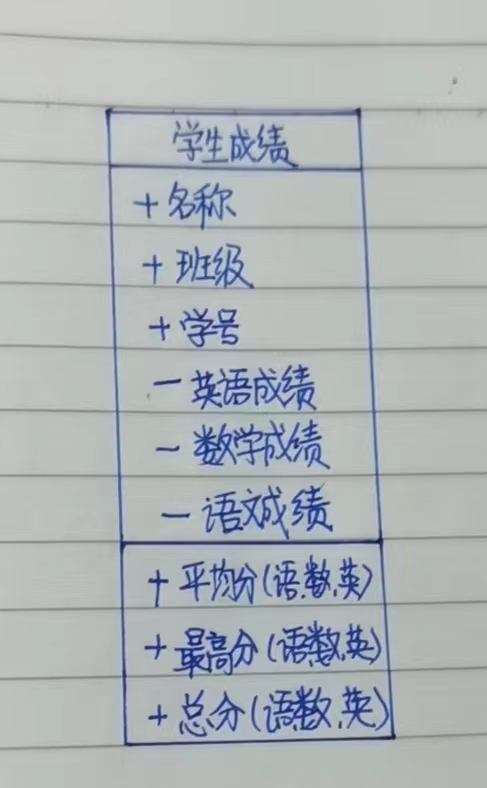 学生成绩
+ 名称
+ 班级
+ 学号
- 英语成绩
- 数学成绩
- 语文成绩
+ 平均分(语,数,英)
+ 最高分(语,数,英)
+ 总分(语,数,英)